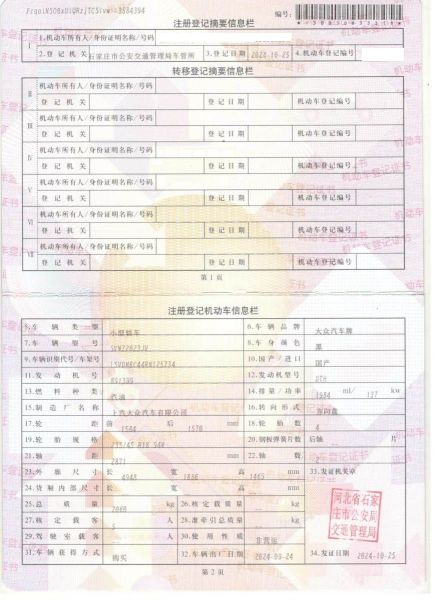 注册登记摘要信息栏
编号：
I
1.机动车所有人/身份证明名称/号码
2.登记机关 石家庄市公安交通管理局车管所 3.登记日期 2024-10-25 4.机动车登记编号
转移登记摘要信息栏
II 机动车所有人/身份证明名称/号码
登记机关 登记日期 机动车登记编号
III 机动车所有人/身份证明名称/号码
登记机关 登记日期 机动车登记编号
IV 机动车所有人/身份证明名称/号码
登记机关 登记日期 机动车登记编号
V 机动车所有人/身份证明名称/号码
登记机关 登记日期 机动车登记编号
VI 机动车所有人/身份证明名称/号码
登记机关 登记日期 机动车登记编号
VII 机动车所有人/身份证明名称/号码
登记机关 登记日期 机动车登记编号
第1页
注册登记机动车信息栏
5.车辆类型 小型轿车 6.车辆品牌 大众汽车牌
7.车辆型号 8.车身颜色 黑
9.车辆识别代号/车架号 10.国产/进口 国产
11.发动机号 12.发动机型号 DTH
13.燃料种类 汽油 14.排量/功率 1984 ml/ 137 kw
15.制造厂名称 上汽大众汽车有限公司 16.转向形式 方向盘
17.轮距 前 1584 后 1570 mm 18.轮胎数 4
19.轮胎规格 235/45 R18 94W 20.钢板弹簧片数 后轴 片
21.轴距 2871 mm 22.轴数 2
23.外廓尺寸 长 4948 宽 1836 高 1465 mm 33.发证机关章
24.货厢内部尺寸 长 宽 高 mm
25.总质量 kg 26.核定载质量 kg
27.核定载客 5 人 28.准牵引总质量 kg
29.驾驶室载客 人 30.使用性质 非营运
31.车辆获得方式 购买 32.车辆出厂日期 2024-09-24 34.发证日期 2024-10-25
河北省石家
庄市公安局
交通管理局
第2页